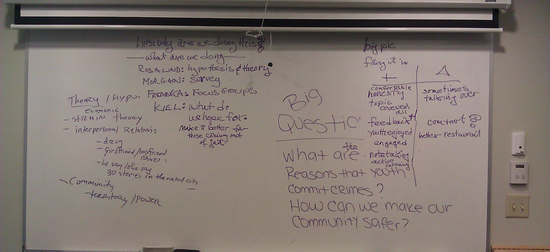 why are we doing this?
what are we doing
ROSALIND: Hypothesis & theory
MORGAN: Survey
FEDERICA: FOCUS GROUPS
KIEL: what do
we hope for
make it better for
those coming out
of jail
Theory / Hypo.
economic
- STRAIN theory
- interpersonal relations
- drug
- girlfriend/boyfriend
issues
30 stories in the naked city
Community
- territory / POWER
BIG
QUESTIC
What are the
Reasons that youth
commit crimes?
How can we make our
community safer?
big pic
+
Δ
comfortable
honesty
topic
covered
all
feedback
youth enjoyed
engaged
notetaking
active
listening
sometimes
talking over
comfort
better restaurant